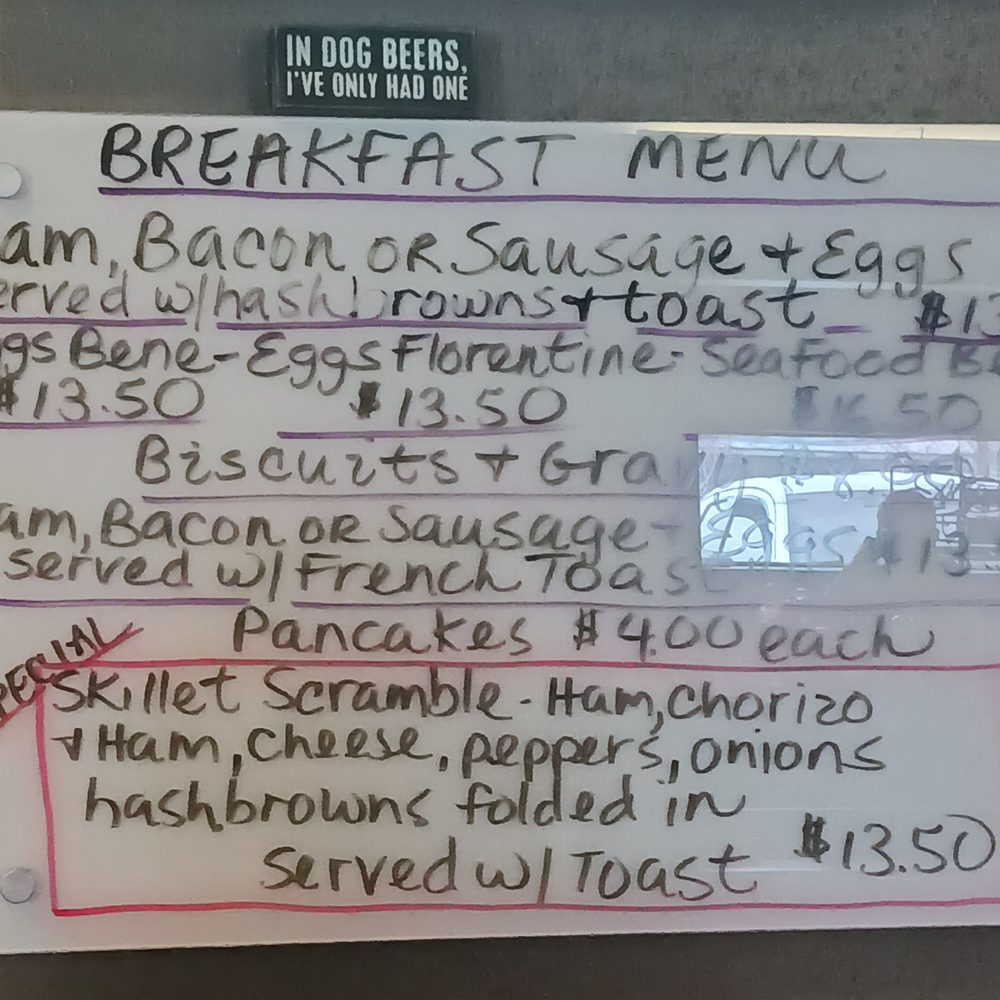 IN DOG BEERS,
I'VE ONLY HAD ONE
BREAKFAST MENU
am, Bacon OR Sausage + Eggs
erved w/hash browns + toast $13
ggs Bene - Eggs Florentine - Seafood Be
$13.50 $13.50 .50
Biscuits + Gra
am, Bacon OR Sausage - Eggs $13
served w/ French Toas
Pancakes $4.00 each
SPECIAL
Skillet Scramble - Ham, Chorizo
+ Ham, cheese, peppers, onions
hashbrowns folded in
Served w/ Toast $13.50